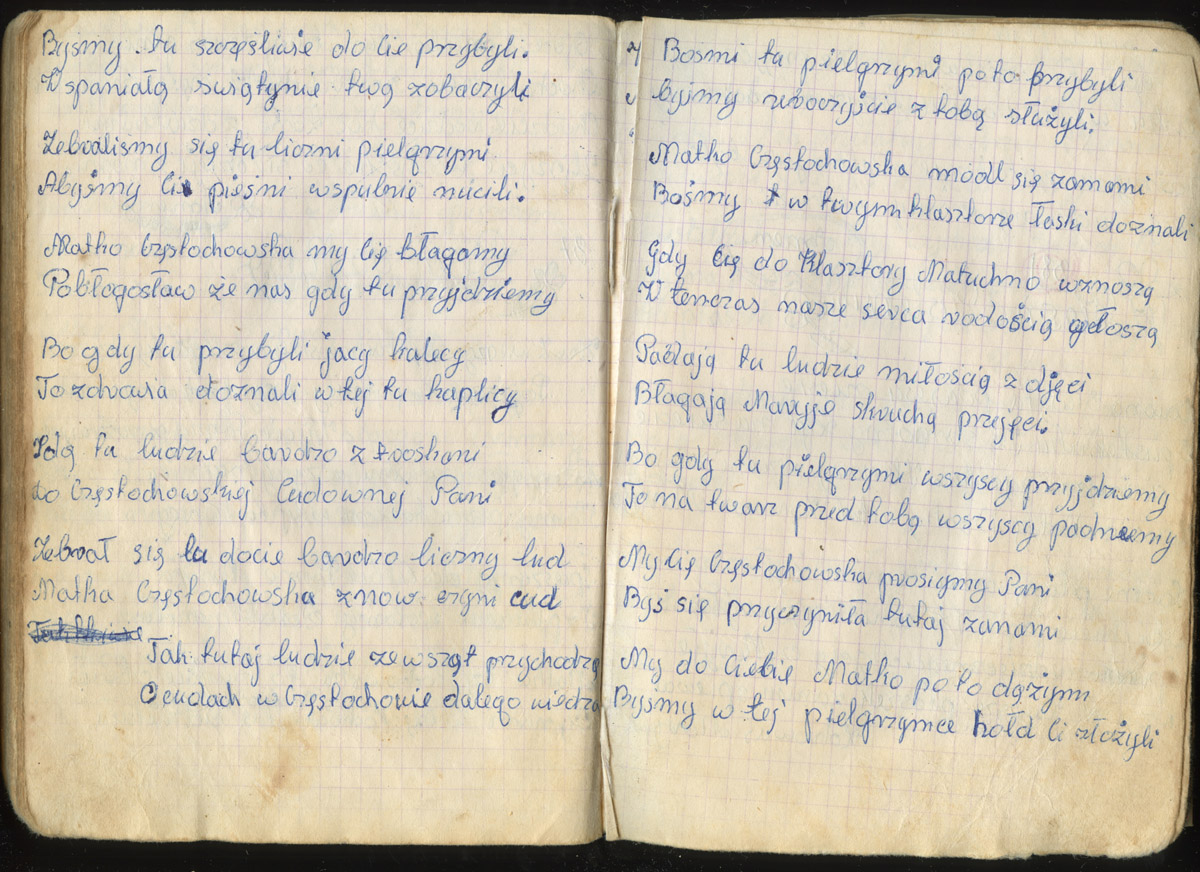 Byśmy tu szczęśliwie do Cie przybyli.
Wspaniałą swiątynie twą zobaczyli
Zebraliśmy się tu liczni pielgrzymi
Abyśmy Ci pieśni wspulnie nucili.
Matko Częstochowska my Cię błagamy
Pobłogosław że nas gdy tu przyjdziemy
Bo gdy tu przybyli jacy kalecy
To zdrowia doznali w tej tu kaplicy
Idą tu ludzie bardzo z troskani
do Częstochowskiej Cudownej Pani
Zebrał się tu docie bardzo liczny lud
Matka Częstochowska znow czyni cud
Tak tutaj ludzie zewsząt przychodzą
O cudach w Częstochowie dalego wiedzą
Bosmi tu pielgrzymi poto przybyli
byjmy uroczyście z tobą służyli.
Matko Częstochowska módl się zanami
Bośmy w twym klasztorze łaski doznali
Gdy Cię do klasztory Matuchno wznoszą
W tenczas nasze serca rodością głoszą
Padają tu ludzie miłością zdjęci
Błagają Maryje skruchą przejęci.
Bo gdy tu pielgrzymi wszyscy przyjdziemy
To na twarz przed tobą wszyscy padniemy
My Cię Częstochowska prosiymy Pani
Byś się przyczyniła tutaj zanami
My do Ciebie Matko poto dążym
Byśmy w tej pielgrzymce hołd Ci złożyli